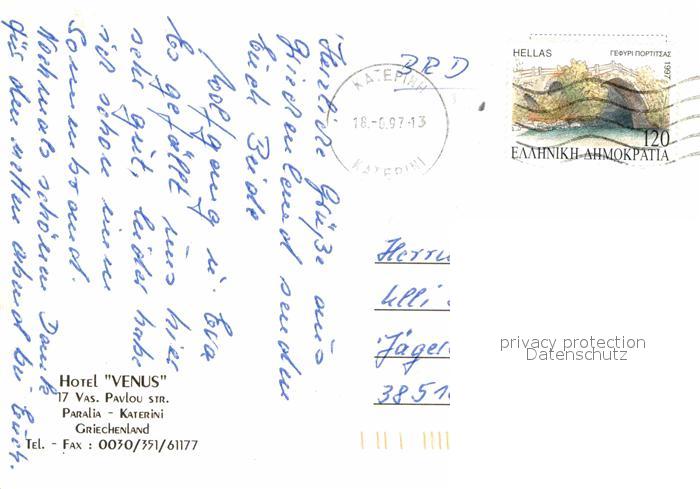 Herzliche Grüße aus
Griechenland senden
Euch Beide
Wolfgang u. Eva
Es gefällt uns hier
sehr gut, leider habe
ich schon einen
Sonnenbrand.
Nochmals schönen Dank
für den netten Abend bei Euch.
BRD
ΚΑΤΕΡΙΝΗ
18.-6.97-13
KATERINI
HELLAS
ΓΕΦΥΡΙ ΠΟΡΤΙΤΣΑΣ
1997
120
ΕΛΛΗΝΙΚΗ ΔΗΜΟΚΡΑΤΙΑ
Herrn
Ulli
Jäger
3851
privacy protection
Datenschutz
Hotel "VENUS"
17 Vas. Pavlou str.
Paralia - Katerini
Griechenland
Tel. - Fax : 0030/351/61177